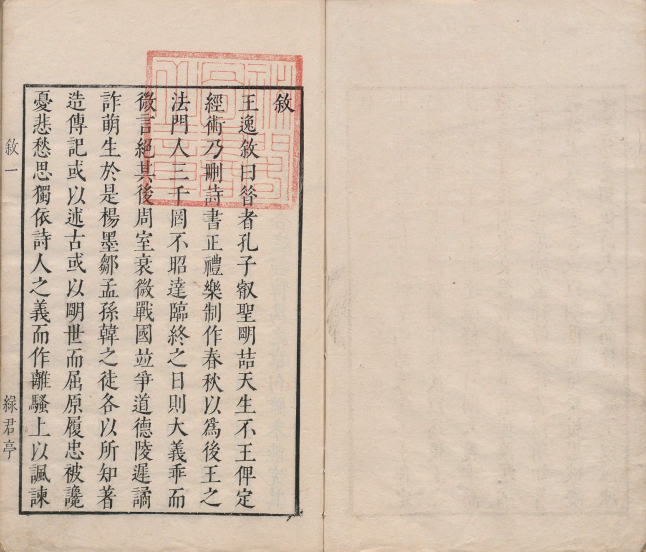 敘
王逸敘曰昝者孔子叡聖明喆天生不王俾定
經術乃刪詩書正禮樂制作春秋以爲後王之
法門人三千罔不昭達臨終之日則大義乖而
微言絕其後周室衰微戰國竝爭道德陵遲譎
詐萌生於是楊墨鄒孟孫韓之徒各以所知著
造傳記或以述古或以明世而屈原履忠被讒
憂悲愁思獨依詩人之義而作離騷上以諷諫
敘一
綠君亭